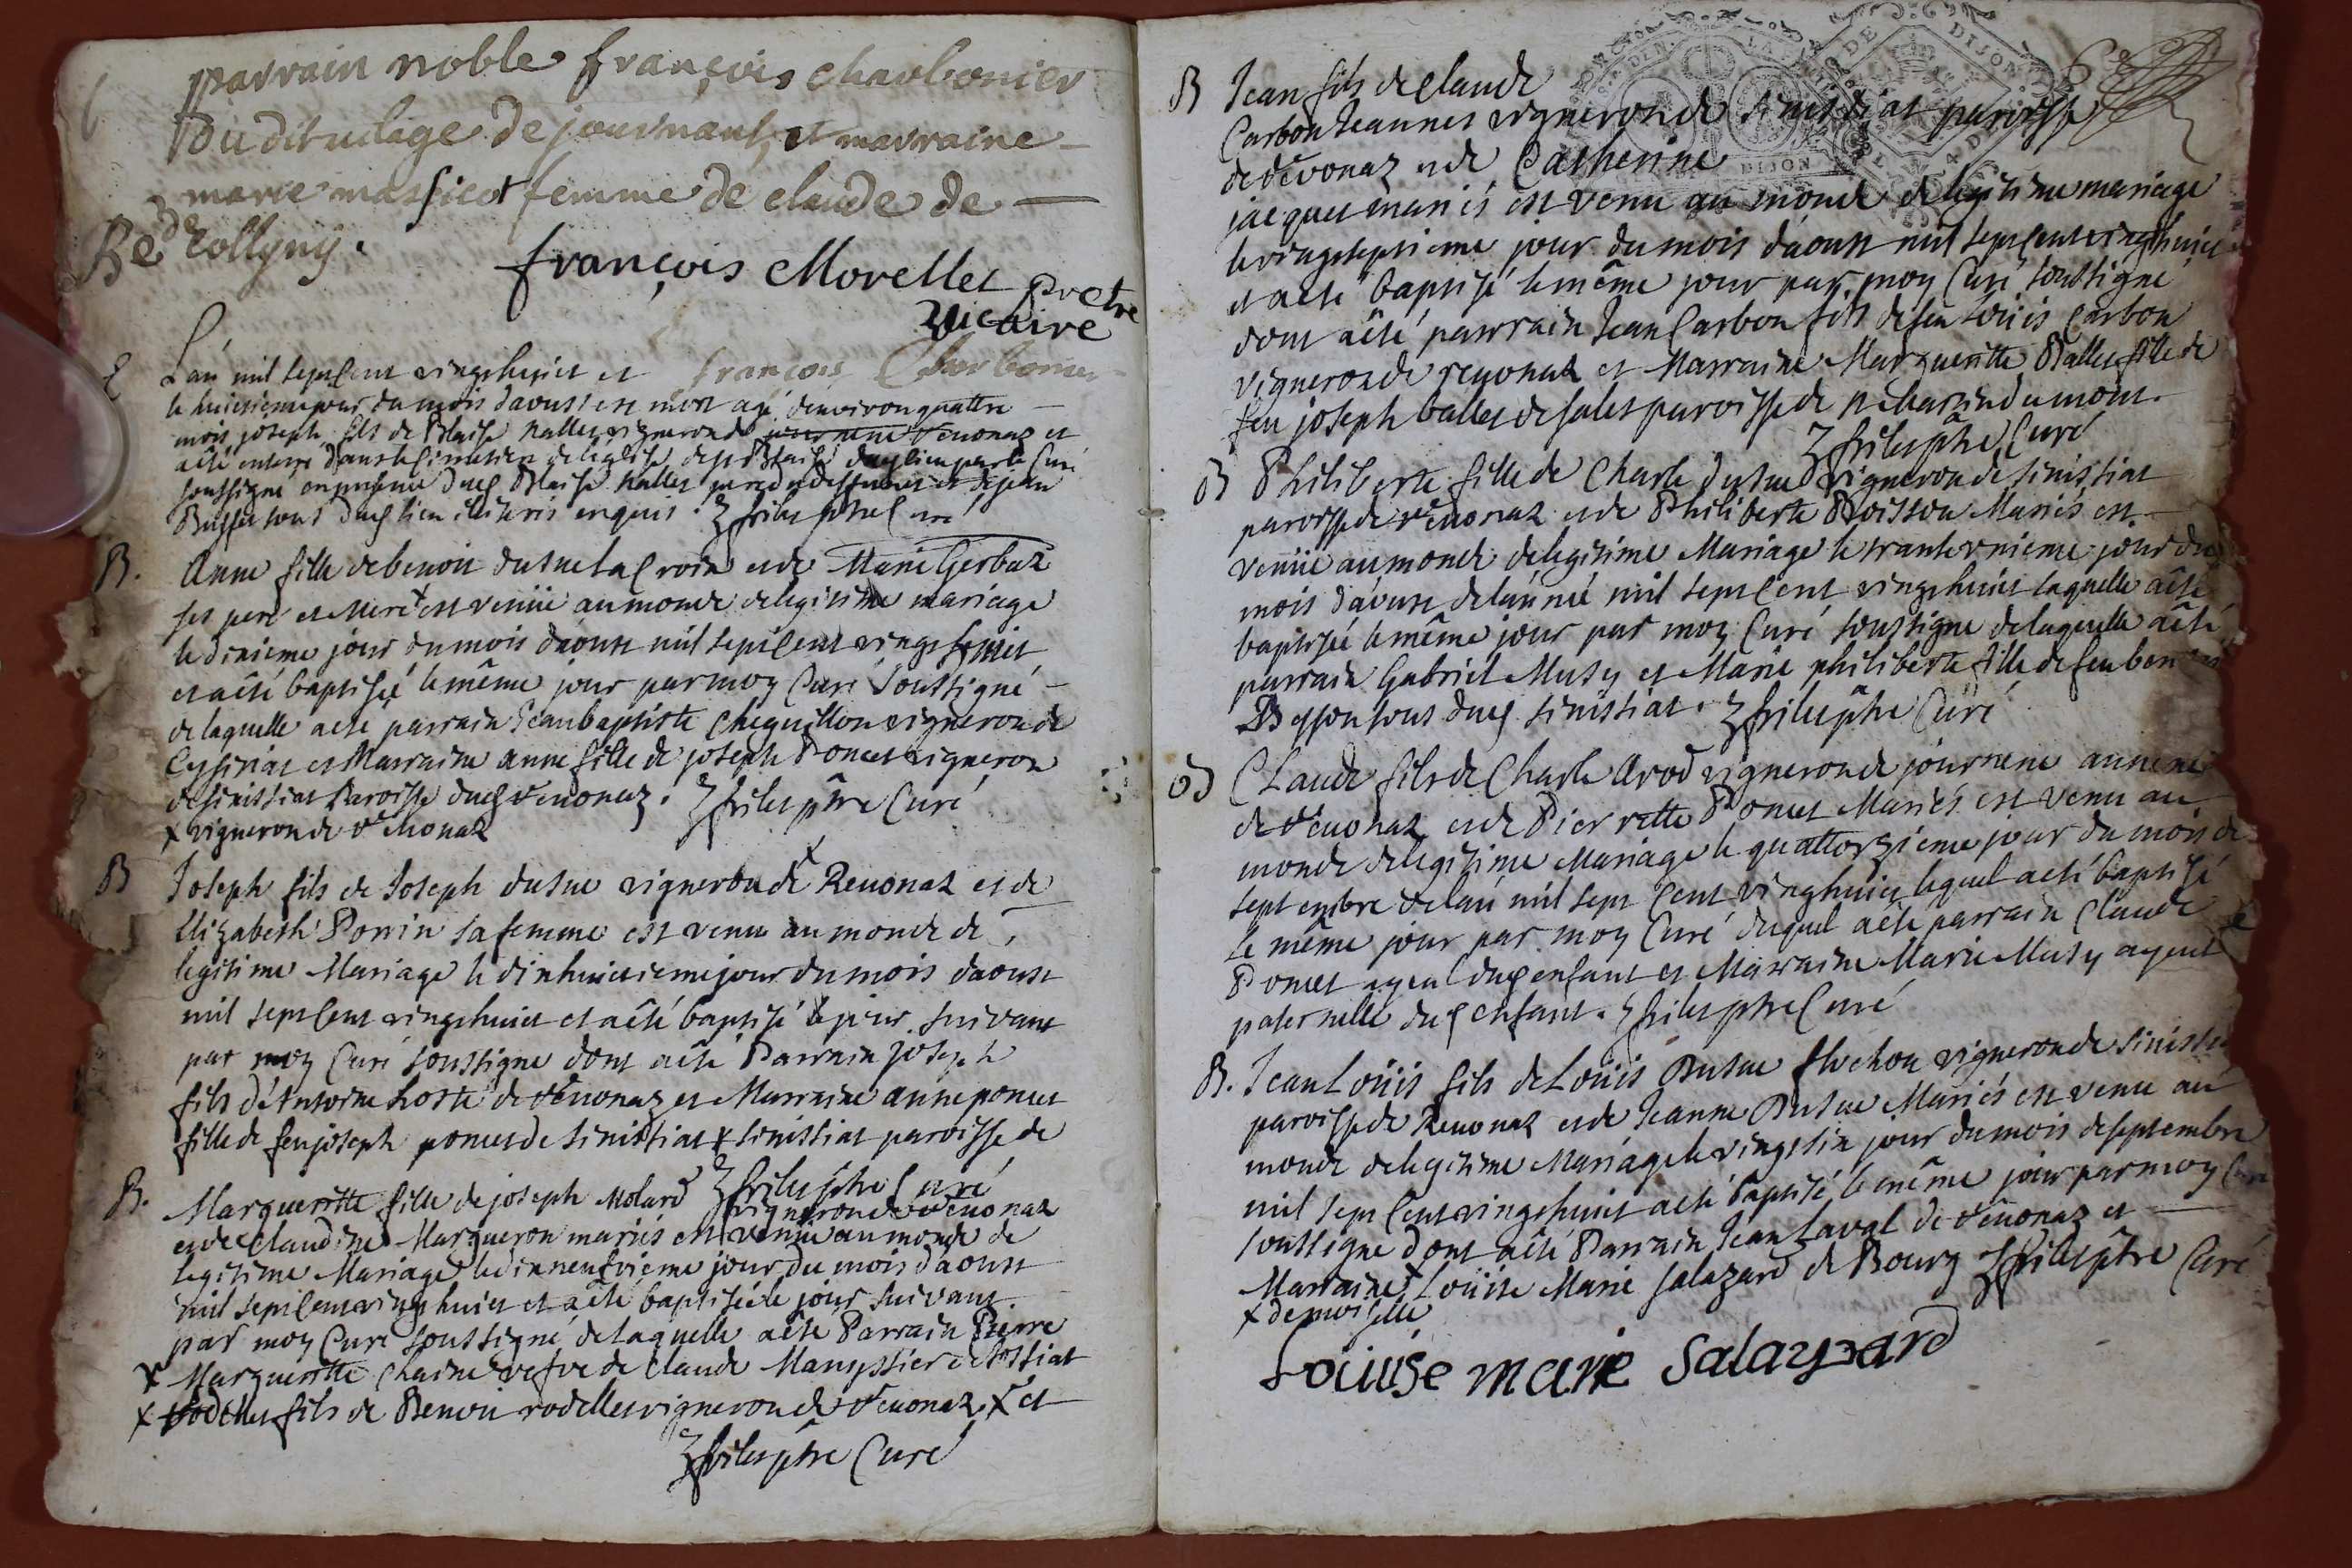 parrain noble françois charbonier
du dit vilage de journant, et marraine
marie massicot femme de claude de
Be de Collyny.
françois Morellet pretre
vicaire
françois Charbonier
L'an mil sept Cent vingt huict et
le huictieme jour du mois d'aoust est mort agé d'environ quattre
mois joseph fils de Blaise nallet vigneron de Reuonaz et
a êté enterré dans le Cimetiere de l'église
soussigné en presence dud Blaise nallet pere du deffunct et de jean
Buffet tous dud lieu illiteris enquis. ptre Curé
B. Anne fille de benoit dusue laCroix et de Marie Gerbaz
ses pere et Mere x est venüe au monde de legitime mariage
le dixieme jour du mois d'aoust mil sept Cent vingt huict
et a êté baptisée le même jour par moy Curé Soussigné
de laquelle a esté parrain Jean baptiste Cheguillon vigneron de
Ceysiriat et Marraine anne fille de joseph Poncet vigneron
de sinissiat Paroisse dud Reuonaz. ptre Curé
x vigneron de Reuonaz
B Joseph fils de Joseph dusue vigneron de x Reuonaz et de
Elizabeth Perrin sa femme est venu au monde de
legitime Mariage le dixhuictieme jour du mois d'aoust
mil sept Cent vingt huict et a êté baptisé le jour suivant
par moy Curé soussigné dont a êté Parrain joseph
fils d'Antoine hoste de Reuonaz et Marraine anne poncet
fille de feu joseph poncet de sinissiat x sinissiat paroisse de
ptre Curé
B. Margueritte fille de joseph Molard vigneron de Reuonaz
et de Claudine Margueron mariés est venüe au monde de
legitime Mariage le dixneufvieme jour du mois d'aoust
mil sept Cent vingt huict et a êté baptisée le jour suivant
par moy Curé soussigné de laquelle a êté Parrain Pierre
x Margueritte Chaine vefve de Claude
x rodellet fils de Benoit rodellet vigneron de Reuonaz x et
ptre Curé
B Jean fils de Claude
Carbon Jeannet vigneron de sinissiat paroisse
de Reuonaz et de Catherine
jacquet mariés est venu au monde de legitime mariage
le vingtseptieme jour du mois d'aoust mil sept Cent vingthuict
et a êté baptisé le même jour par moy Curé soussigné
dont a êté parrain Jean Carbon fils de feu Loüis Carbon
vigneron de reuonaz et Marraine Margueritte Ballet fille de
feu joseph ballet de salet paroisse de
ptre Curé
B Philiberte fille de Charle dusue vigneron de sinissiat
paroisse de Reuonaz et de Philiberte Boisson Mariés est
venüe au monde de legitime Mariage le trantevnieme jour du
mois d'aoust de l'année mil sept Cent vingt huict laquelle a êté
baptisée le même jour par moy Curé soussigné de laquelle a êté
parrain Gabriel Musy et Marie philiberte fille de feu benoit
Boysson tous dud sinissiat. ptre Curé
B CLaude fils de Charle Arod vigneron de journene annexe
de Reuonaz et de Pierrette Poncet Mariés est venu au
monde de legitime Mariage le quattorzieme jour du mois de
septembre de l'an mil sept Cent vingt huict lequel a êté baptisé
le même jour par moy Curé duquel a êté parrain Claude
Poncet ayeul dud enfant et Marraine Marie Musy ayeul
paternelle dud enfant. ptre Curé
B. Jean Loüis fils de Loüis Dusue vigneron de sinissiat
paroisse de Reuonaz et de Jeanne Dusue Mariés est venu au
monde de legitime Mariage le vingt six jour du mois de septembre
mil sept Cent vingt huict a êté baptisé le même jour par moy Curé
soussigné dont a êté Parrain Jean Laval de Reuonaz et
Marraine x Loüise Marie salazard de Bourg ptre Curé
x demoiselle
Loüise marie Salazard